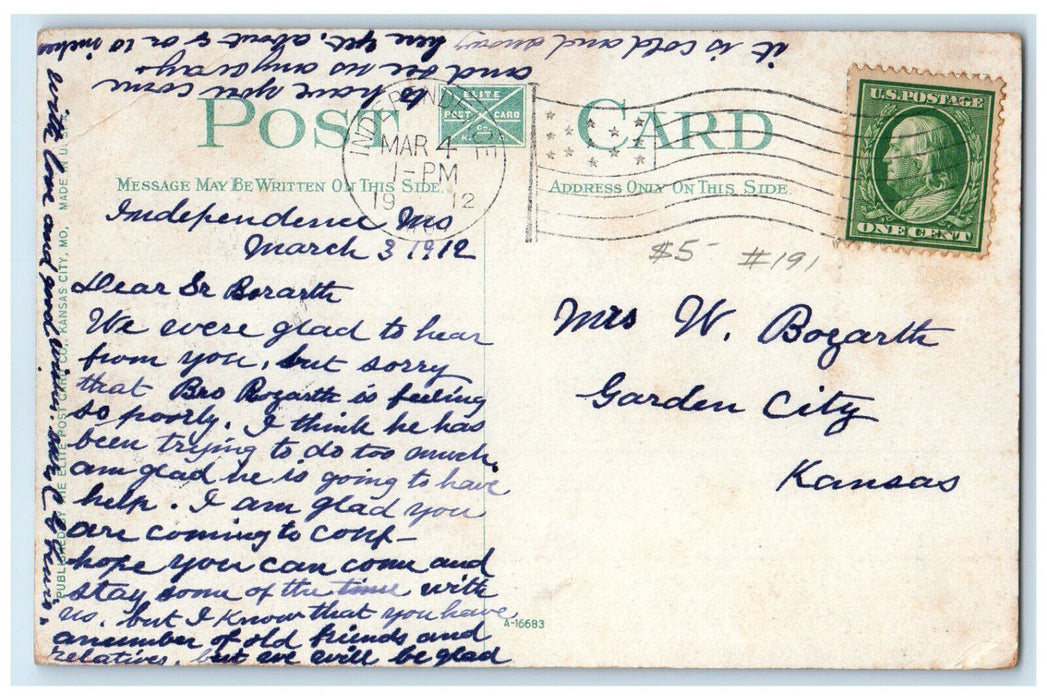 POST CARD
ELITE
POST CARD
Co.
MESSAGE MAY BE WRITTEN ON THIS SIDE
ADDRESS ONLY ON THIS SIDE
INDEPENDENCE
MAR 4
1-PM
1912
U.S. POSTAGE
ONE CENT
$5- #191
Independence Mo
March 3 1912
Dear Sr Bozarth
We were glad to hear
from you, but sorry
that Bro Bozarth is feeling
so poorly. I think he has
been trying to do too much.
am glad he is going to have
help. I am glad you
are coming to conf-
hope you can come and
stay some of the time with
us, but I know that you have
a number of old friends and
relatives, but we will be glad
to have you come
and see us anyway.
it is cold and snowy here yet, about 8 or 10 inches
with love and good wishes.
Mrs W. Bozarth
Garden City
Kansas
A-16683
PUBLISHED BY THE ELITE POST CARD CO., KANSAS CITY, MO. MADE U.